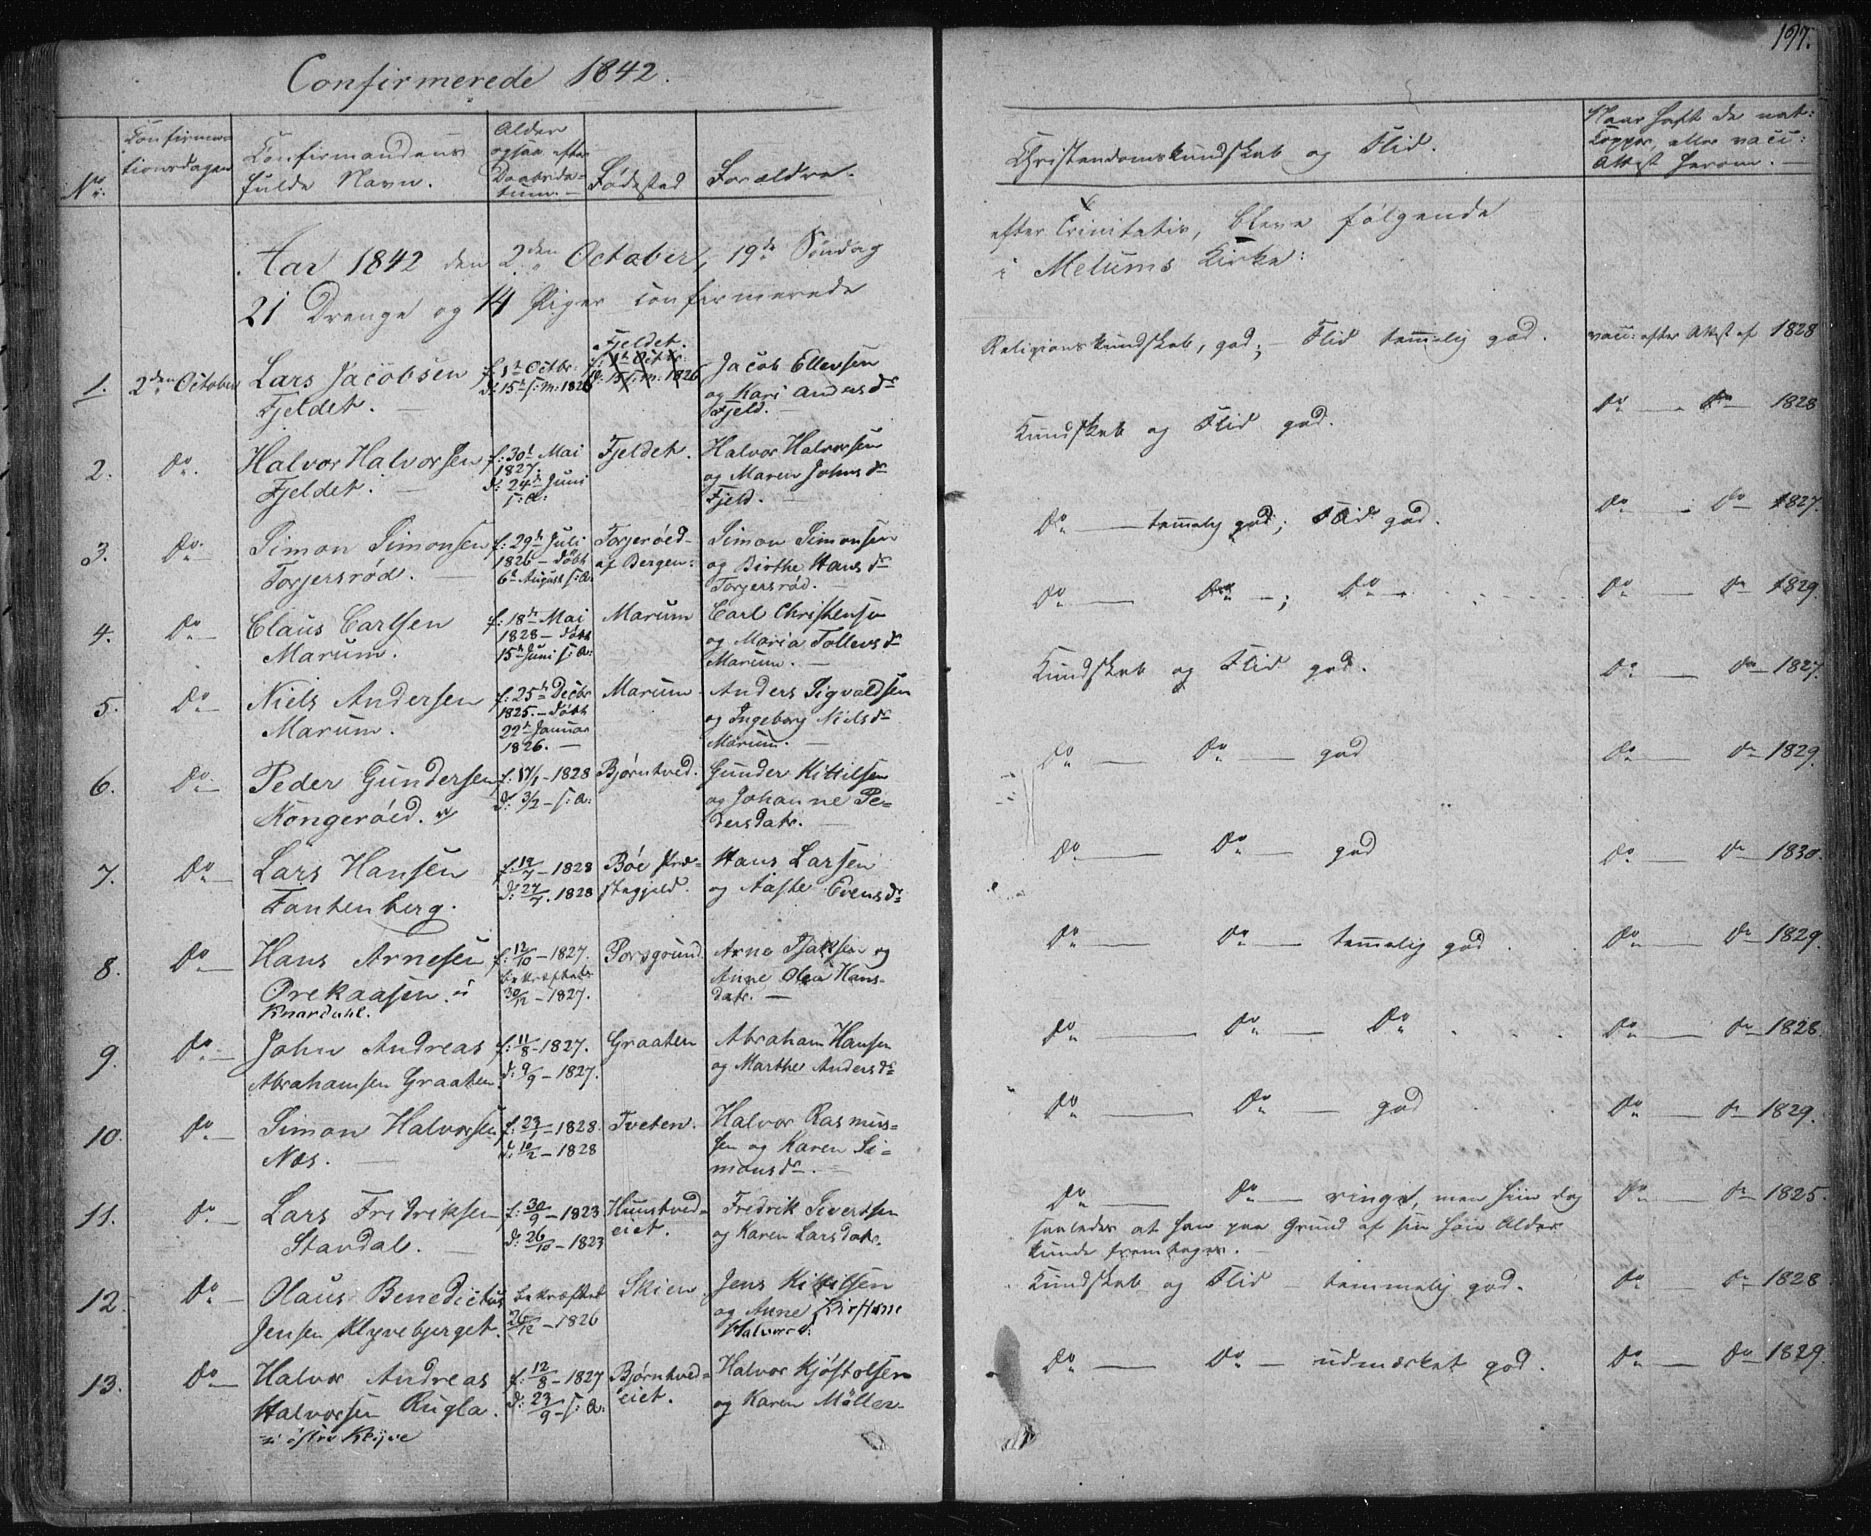 197.
Confirmerede 1842.
No.
Confirma-
tionsdagen
Confirmandens
fulde Navn.
Alder
ogsaa efter
Daabsda-
tum.
Fødested
Forældre.
Christendomskundskab og Flid.
Naar haft de nat:
Kopper, eller vacc:
Attest herom.
Aar 1842 den 2den October, 19de Søndag
efter Trinitatis, bleve følgende
21 Drenge og 14 Piger confirmerede
i Melums Kirke:
1.
2den October
Lars Jacobsen
Fjeldet.
f: 1te Octbr.
d: 15de s: m: 1826
Fjeldet.
f: 1te Octbr.
d: 15 s: m: 1826
Jacob Ellevsen
og Kari Andersdr
Fjeld.
Religionskundskab, god; Flid temmelig god.
vacc: efter Attest af 1828
2.
Do.
Halvor Halvorsen
Fjeldet.
f: 30te Mai
1827.
d: 24de Juni
s: A:
Fjeldet.
Halvor Halvorsen
og Maren Johnsdr
Fjeld.
Kundskab og Flid god.
Do — Do 1828
3.
Do.
Simon Simonsen
Torjersrød.
f: 29de Juli
1826 - døbt
6te August s: A:
Torjerøed
af Bergen:
Simon Simonsen
og Birthe Hansdr
Torjersrød.
Do — temmelig god; Flid god.
Do — Do 1827.
4.
Do
Claus Carlsen
Marum.
f: 18de Mai
1828 - døbt
15de Juni s: A:
Marum
Carl Christensen
og Maria Tollevsdr
Marum.
Do — Do —; Do —
Do — Do 1829.
5.
Do
Niels Andersen
Marum.
f: 25de Decbr
1825. - døbt
22de Januar
1826.
Marum
Anders Sigvaldsen
og Ingeborg Nielsdr
Marum.
Kundskab og Flid god.
Do — Do 1827.
6.
Do.
Peder Gundersen
Kongerøed.
f: 17/1 - 1828
d: 3/2 - s: A:
Bjørntved.
Gunder Kittilsen
og Johanne Pe-
dersdatr.
Do — Do — god
Do — Do 1829.
7.
Do
Lars Hansen
Tantenberg.
f: 12/7 - 1828
d: 27/7. 1828
Bøe Præ-
stegjeld.
Hans Larsen
og Aaste Evensdr
Do — Do — god
Do — Do 1830.
8.
Do
Hans Arnesen
Orekaasen. i
Knardahl.
f: 12/10 - 1827.
bekræftet
30/12 - 1827.
Porsgrund
Arne Isaksen og
Anne Olea Hans-
datr.
Do — Do — temmelig god
Do — Do 1829.
9.
Do.
John Andreas
Abrahamsen Graaten
f: 11/8 - 1827.
d: 9/9 - 1827.
Graaten
Abraham Hansen
og Marthe Andersdr
Do — Do — Do
Do — Do 1828.
10.
Do
Simon Halvorsen
Næs.
f: 23/1 - 1828.
d: 10/2 - 1828
Tveten.
Halvor Rasmus-
sen og Karen Si-
monsdr.
Do — Do — god
Do — Do 1829.
11.
Do
Lars Fredriksen
Standal.
f: 30/9 - 1823
d: 26/10 - 1823
Hunstved-
eiet.
Fredrik Sivertsen
og Karen Larsdatr.
Do — Do — ringe, men hiin dog
saaledes at han paa Grund af sin høie Alder
kunde fremtages.
Do — Do 1825.
12.
Do
Olaus Benedictus
Jensen Klyvebjerget.
bekræftet
26/12 - 1826
Skien
Jens Kittilsen
og Anne Kirstine
Halvorsd:
Kundskab og Flid — temmelig god.
Do — Do 1828
13.
Do
Halvor Andreas
Halvorsen Rugla.
i østre Klyve
f: 12/8 - 1827
d: 23/9 - s: A:
Bjørntved-
eiet.
Halvor Kjøstolsen
og Karen Möller
Do — Do — udmærket god.
Do — Do 1829.